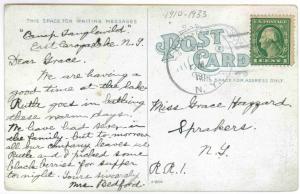 1910-1933
THIS SPACE FOR WRITING MESSAGES
POST CARD
THIS SPACE FOR ADDRESS ONLY
"Camp Tanglewild"
East Caroga Lake, N.Y.
Dear Grace.
We are having a
good time at the lake
Ruth goes in bathing
these warm days.
We have had seven in
the family but to-morrow
all our company leaves us
Ruth and I picked some
black berries for supper
to-night. Yours Sincerely
Mrs Bedford.
Miss Grace Haggard
Sprakers.
N.Y.
R.R.1.
N.Y.